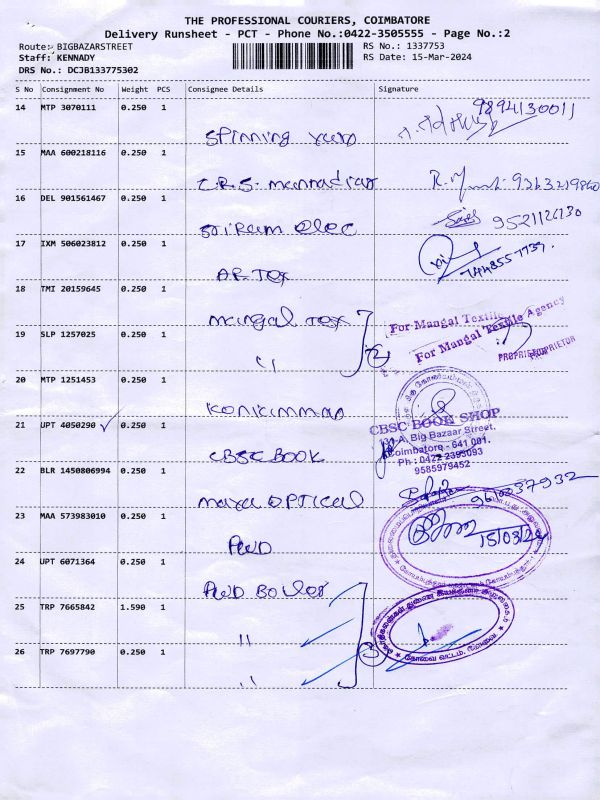 THE PROFESSIONAL COURIERS, COIMBATORE
Delivery Runsheet - PCT - Phone No.:0422-3505555 - Page No.:2
Route: BIGBAZARSTREET RS No.: 1337753
Staff: KENNADY RS Date: 15-Mar-2024
DRS No.: DCJB133775302
S No Consignment No Weight PCS Consignee Details Signature
14 MTP 3070111 0.250 1
Spinning 9894130011
15 MAA 600218116 0.250 1
C.R.S.
16 DEL 901561467 0.250 1
Sriram Elec
17 IXM 506023812 0.250 1
AR Tex
18 TMI 20159645 0.250 1
Mangal Tex For Mangal Textile Agency
For Mangal Textile Agency
19 SLP 1257025 0.250 1
" 2 PROPRIETOR
20 MTP 1251453 0.250 1
21 UPT 4050290 0.250 1
CBSC BOOK
CBSC BOOK SHOP
131-A, Big Bazaar Street,
Coimbatore - 641 001.
Ph : 0422 2393093
9585979452
22 BLR 1450806994 0.250 1
Maya OPTICAL
23 MAA 573983010 0.250 1
PWD 15/03/24
24 UPT 6071364 0.250 1
PWD
25 TRP 7665842 1.590 1
"
26 TRP 7697790 0.250 1
" 3